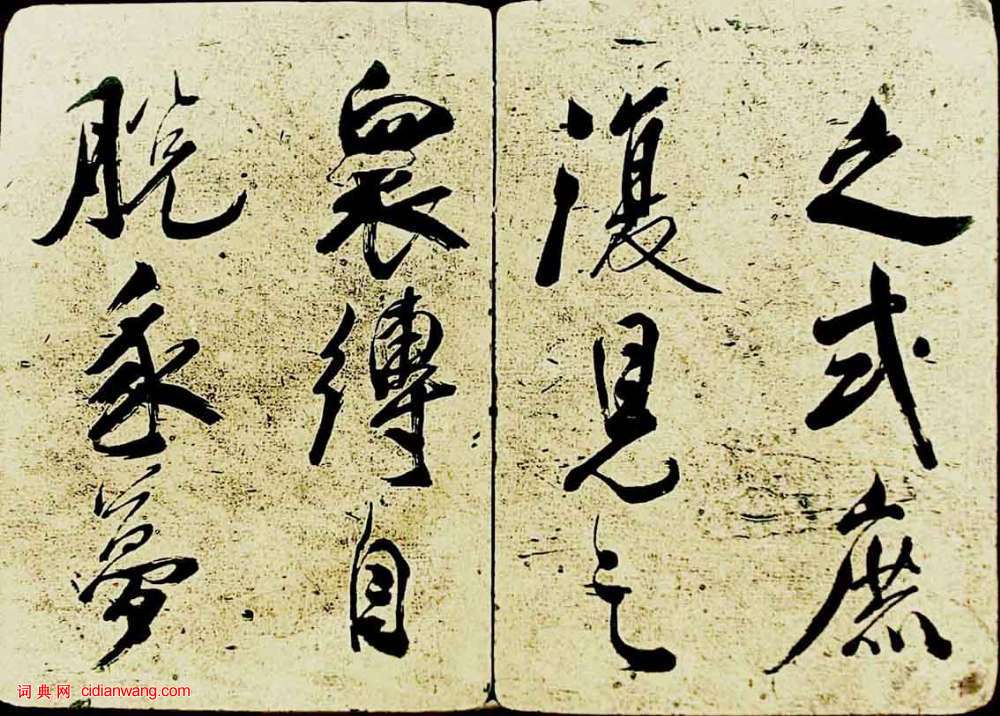 之式庶
復見之
眾縛自
脫夢
词典网 cidianwang.com